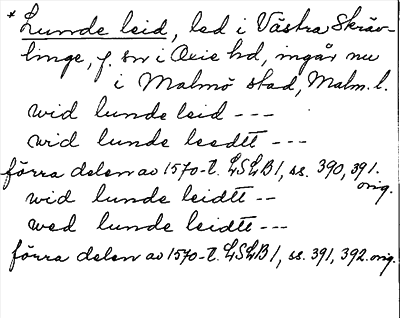 * Lunde leid, led i Västra Skräv-
linge, f. sn i Oxie hd, ingår nu
i Malmö stad, Malm. l.
wid lunde leid ---
wid lunde leedtt ---
förra delen av 1570-t. LSLB 1, ss. 390, 391.
orig.
wid lunde leidtt --
wed lunde leidtt ---
förra delen av 1570-t. LSLB 1, ss. 391, 392. orig.